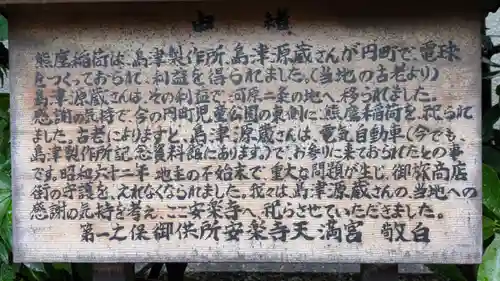 由緒
熊座稲荷は、島津製作所、島津源蔵さんが円町で、電球
をつくっておられ、利益を得られました。(当地の古老より)
島津源蔵さんは、その利益で、河原二条の地へ、移られました。
感謝の気持で、今の円町児童公園の東側に、熊座稲荷を、祀られ
ました。古老によりますと、島津源蔵さんは、電気自動車(今でも、
島津製作所記念資料館にあります。)で、お参りに来ておられたとの事
です。昭和六十二年 地主の不始末で、重大な問題が生じ、御旅商店
街の守護を、えれなくなられました。我々は、島津源蔵さんの、当地への
感謝の気持を考え、ここ安楽寺へ、祀らさせていただきました。
第一之保御供所安楽寺天満宮 敬白